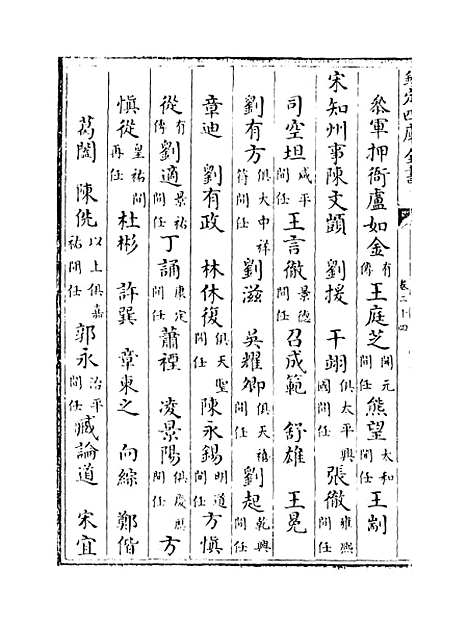 欽定四庫全書
卷三十四
叅軍押衙盧如金有傳王庭芝開元間任熊望太和間任王剬
宋知州事陳文顗 劉援 干翊俱太平興國間任張徹雍熙間任
司空坦咸平間任王言徹景德間任召成範 舒雄 王晃
劉有方俱大中祥符間任劉滋 吳耀卿俱天禧間任劉起乾興間任
章迪 劉有政 林休復俱天聖間任陳永錫明道間任方慎
從有傳劉適景祐間任丁誦康定間任蕭禋 凌景陽俱慶厯間任方
慎從皇祐間再任杜彬 許巽 章東之 向綜 鄭偕
葛閎 陳侁以上俱嘉祐間任郭永治平間任臧論道 宋宜